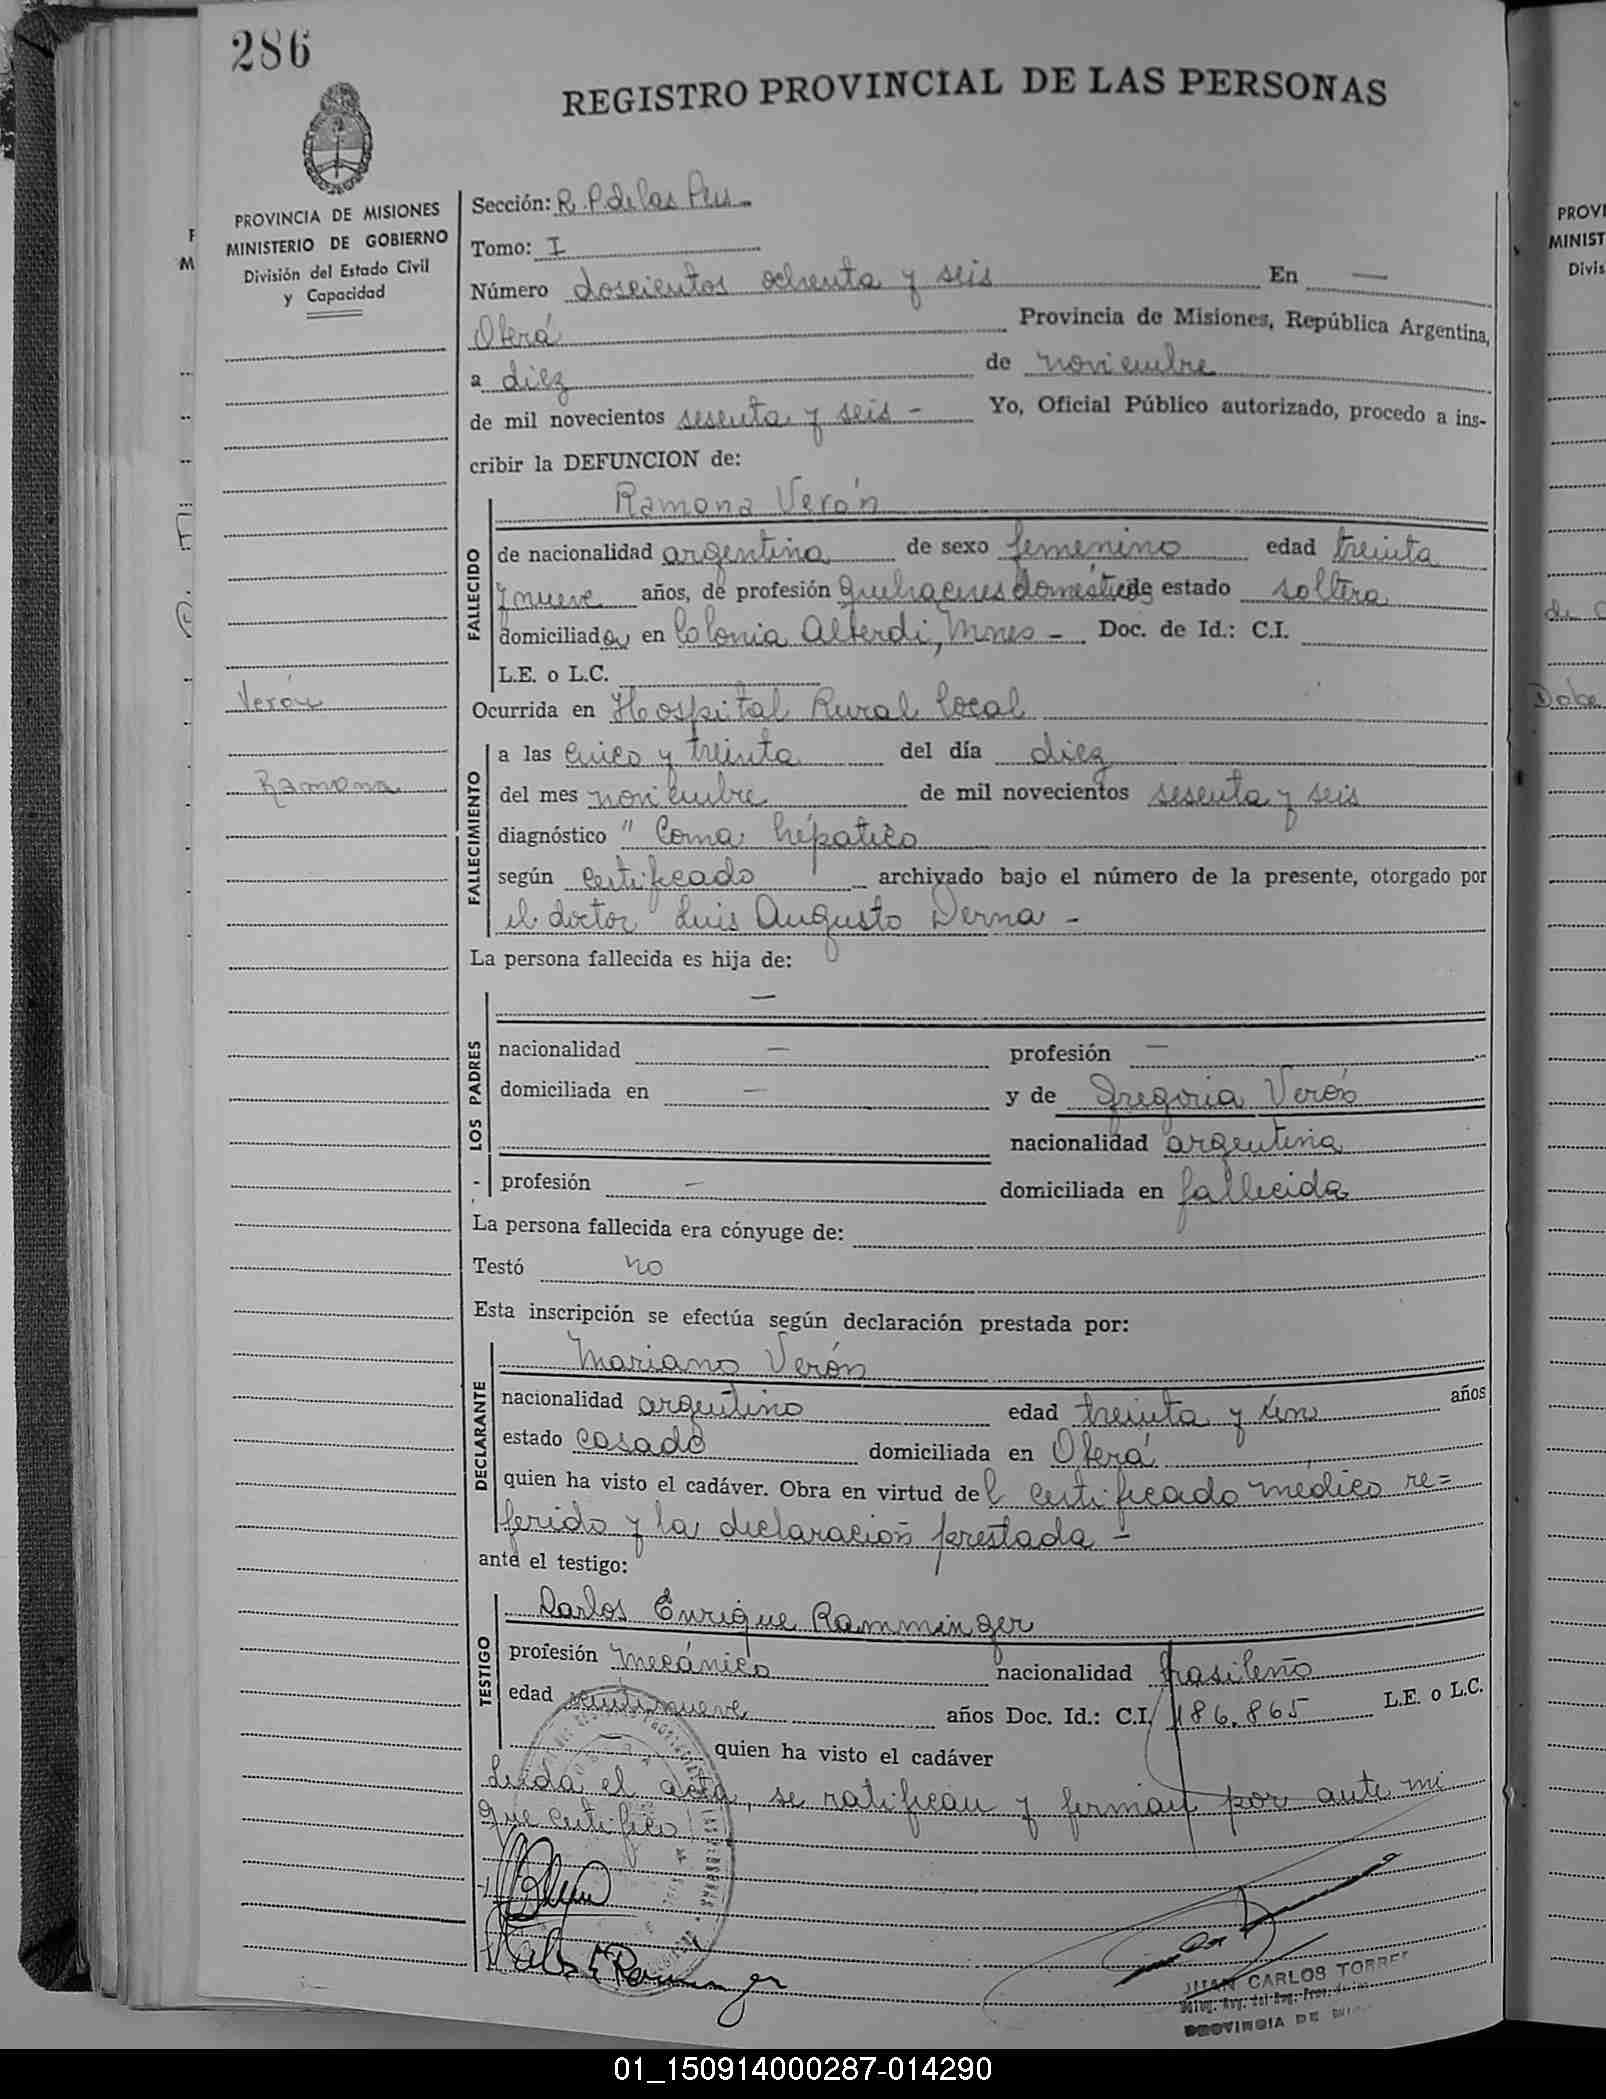 286
REGISTRO PROVINCIAL DE LAS PERSONAS
PROVINCIA DE MISIONES
MINISTERIO DE GOBIERNO
División del Estado Civil
y Capacidad
Verón
Ramona
Sección: R. P. de las Pers.
Tomo: I
Número doscientos ochenta y seis En —
Oberá Provincia de Misiones, República Argentina,
a diez de noviembre
de mil novecientos sesenta y seis - Yo, Oficial Público autorizado, procedo a ins-
cribir la DEFUNCION de:
FALLECIDO
Ramona Verón
de nacionalidad argentina de sexo femenino edad treinta
y nueve años, de profesión quehaceres domésticos de estado soltera
domiciliada en Colonia Alberdi, Mnes - Doc. de Id.: C.I.
L.E. o L.C.
Ocurrida en Hospital Rural local
FALLECIMIENTO
a las cinco y treinta del día diez
del mes noviembre de mil novecientos sesenta y seis
diagnóstico " Coma hépatico
según certificado archivado bajo el número de la presente, otorgado por
el doctor Luis Augusto Derna -
La persona fallecida es hija de:
LOS PADRES
—
nacionalidad — profesión —
domiciliada en — y de Gregoria Verón
nacionalidad argentina
profesión — domiciliada en fallecida
La persona fallecida era cónyuge de:
Testó no
Esta inscripción se efectúa según declaración prestada por:
DECLARANTE
Mariano Verón
nacionalidad argentino edad treinta y un años
estado casado domiciliada en Oberá
quien ha visto el cadáver. Obra en virtud del certificado médico re=
ferido y la declaración prestada -
ante el testigo:
TESTIGO
Carlos Enrique Ramminger
profesión mecánico nacionalidad brasileño
edad veintinueve años Doc. Id.: C.I. 186.865 L.E. o L.C.
quien ha visto el cadáver
Leída el acta, se ratifican y firman por ante mi
que certifico
JUAN CARLOS TORRES
PROVINCIA DE
PROVI
MINIST
Divis
01_150914000287-014290